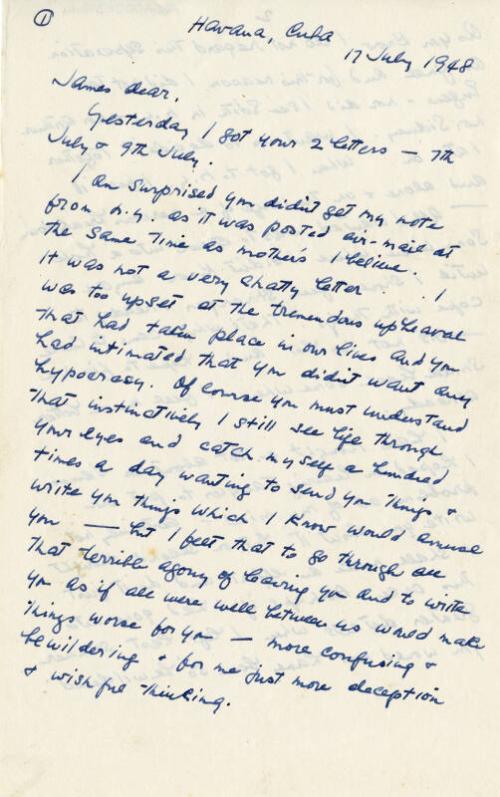 ①
Havana, Cuba
17 July 1948
James dear,
Yesterday I got your 2 letters — 7th
July & 9th July.
I am surprised you didn't get my note
from N.Y. as it was posted air-mail at
the same time as mother's I believe.
It was not a very chatty letter. I
was too upset at the tremendous upheaval
that had taken place in our lives and you
had intimated that you didn't want any
hypocrasy. Of course you must understand
that instinctively I still see life through
your eyes and catch myself a hundred
times a day wanting to send you things &
write you things which I know would amuse
you — but I feel that to go through all
that terrible agony of leaving you and to write
you as if all were well between us would make
things worse for you — more confusing &
bewildering & for me just more deception
& wishful thinking.